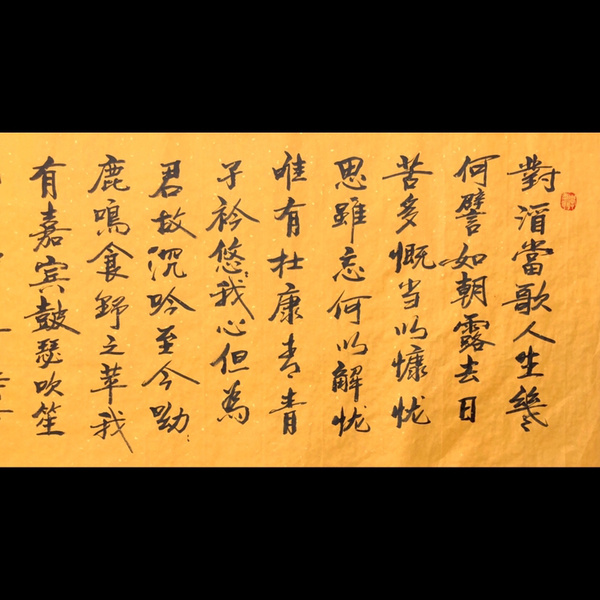 對酒當歌人生幾
何譬如朝露去日
苦多慨当以慷忧
思難忘何以解忧
唯有杜康青青
子衿悠々我心但為
君故沉吟至今呦々
鹿鳴食野之苹我
有嘉賓鼓瑟吹笙